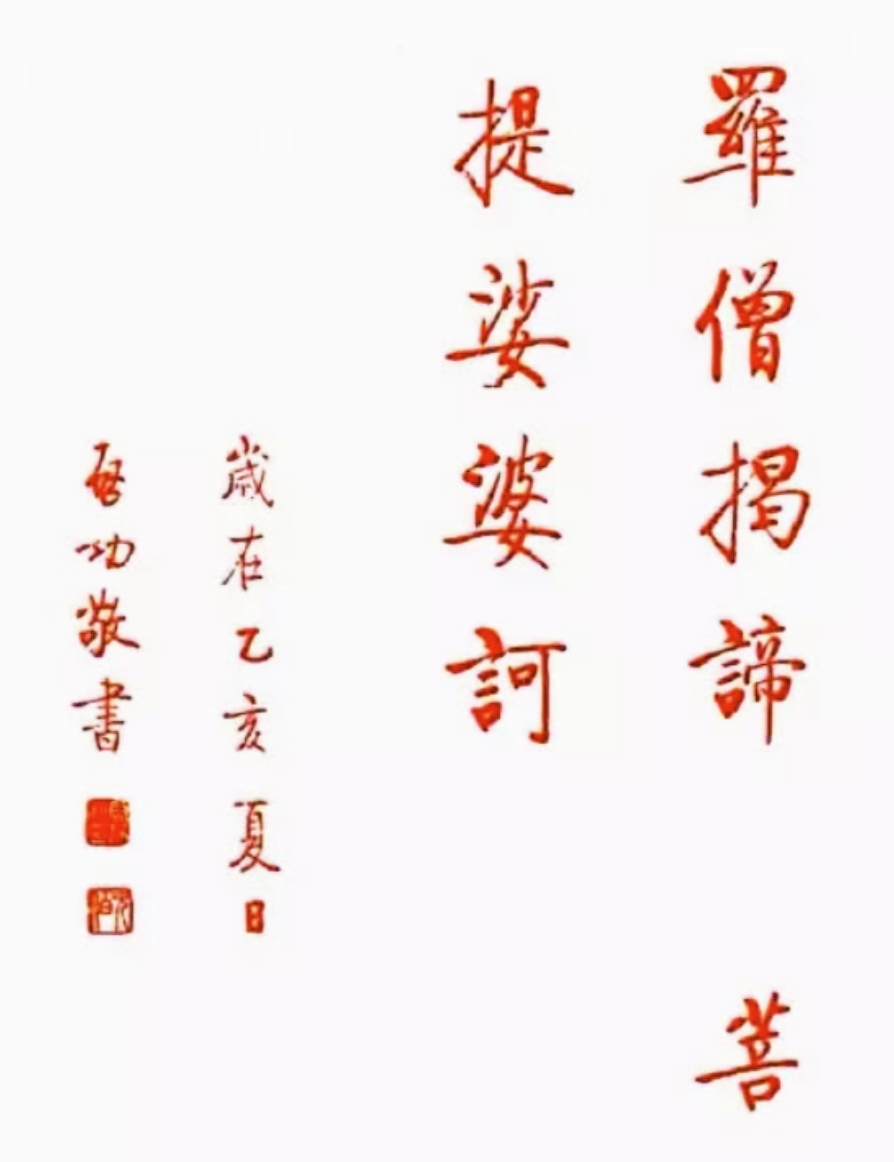 羅僧揭諦　菩
提娑婆訶
歲在乙亥夏日
啓功敬書